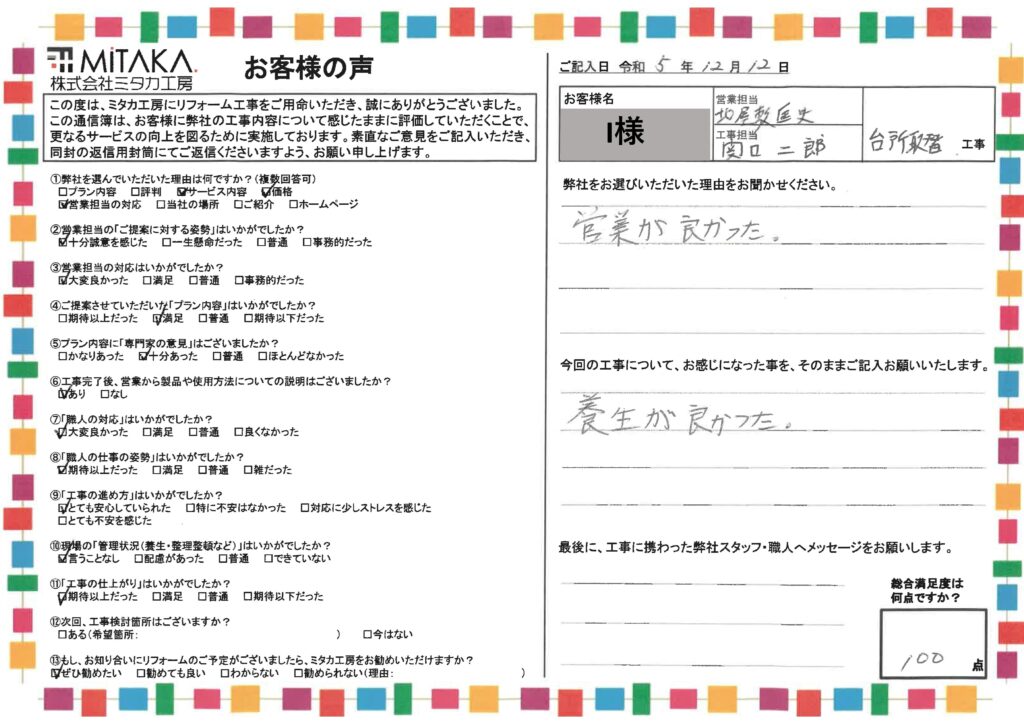 MiTAKA.
株式会社ミタカ工房
お客様の声
この度は、ミタカ工房にリフォーム工事をご用命いただき、誠にありがとうございました。
この通信簿は、お客様に弊社の工事内容について感じたままに評価していただくことで、
更なるサービスの向上を図るために実施しております。素直なご意見をご記入いただき、
同封の返信用封筒にてご返信くださいますよう、お願い申し上げます。
①弊社を選んでいただいた理由は何ですか?(複数回答可)
□プラン内容 □評判 ☑サービス内容 ☑価格
☑営業担当の対応 □当社の場所 □ご紹介 □ホームページ
②営業担当の「ご提案に対する姿勢」はいかがでしたか?
☑十分誠意を感じた □一生懸命だった □普通 □事務的だった
③営業担当の対応はいかがでしたか?
☑大変良かった □満足 □普通 □事務的だった
④ご提案させていただいた「プラン内容」はいかがでしたか?
□期待以上だった ☑満足 □普通 □期待以下だった
⑤プラン内容に「専門家の意見」はございましたか?
□かなりあった ☑十分あった □普通 □ほとんどなかった
⑥工事完了後、営業から製品や使用方法についての説明はございましたか?
☑あり □なし
⑦「職人の対応」はいかがでしたか?
☑大変良かった □満足 □普通 □良くなかった
⑧「職人の仕事の姿勢」はいかがでしたか?
☑期待以上だった □満足 □普通 □雑だった
⑨「工事の進め方」はいかがでしたか?
☑とても安心していられた □特に不安はなかった □対応に少しストレスを感じた
□とても不安を感じた
⑩現場の「管理状況(養生・整理整頓など)」はいかがでしたか?
☑言うことなし □配慮があった □普通 □できていない
⑪「工事の仕上がり」はいかがでしたか?
☑期待以上だった □満足 □普通 □期待以下だった
⑫次回、工事検討箇所はございますか?
□ある(希望箇所: ) □今はない
⑬もし、お知り合いにリフォームのご予定がございましたら、ミタカ工房をお勧めいただけますか?
☑ぜひ勧めたい □勧めても良い □わからない □勧められない(理由: )
ご記入日 令和 5 年 12 月 12 日
お客様名
I様
営業担当
工事担当
関口 二郎
台所取替 工事
弊社をお選びいただいた理由をお聞かせください。
営業が良かった。
今回の工事について、お感じになった事を、そのままご記入お願いいたします。
養生が良かった。
最後に、工事に携わった弊社スタッフ・職人へメッセージをお願いします。
総合満足度は
何点ですか?
100 点